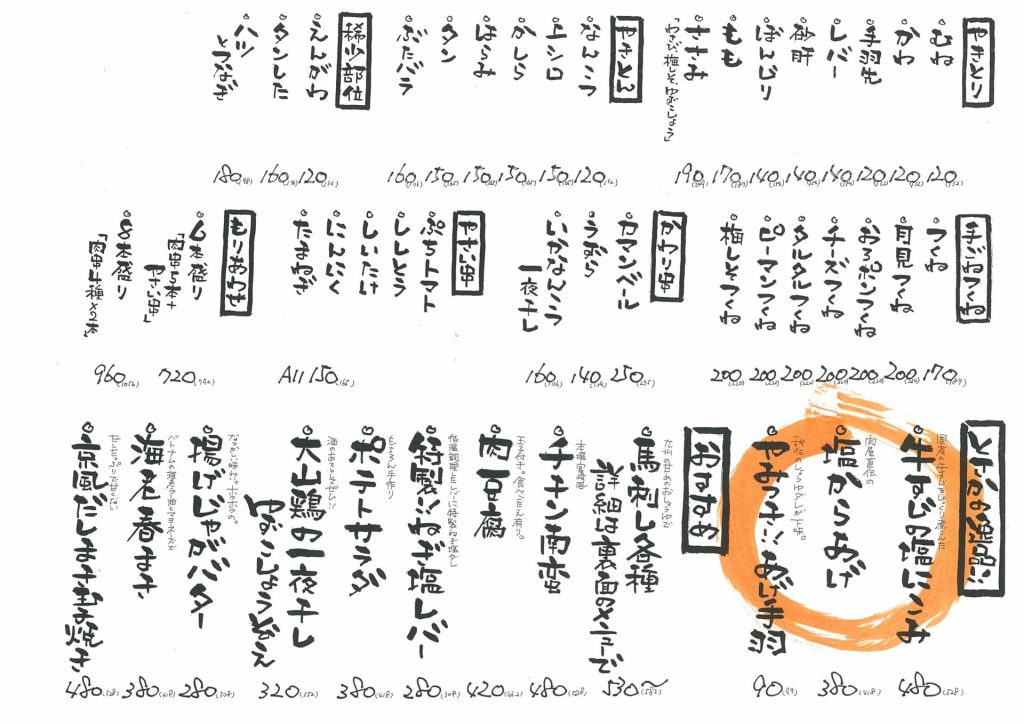 やきとり
むね 120(132)
かわ 120(132)
手羽先 120(132)
レバー 140(154)
砂肝 140(154)
ぼんじり 140(154)
もも 170(187)
ささみ 190(209)
「わさび、梅しそ、ゆずこしょう」
やきとん
なんこつ 120(132)
上シロ 150(165)
かしら 150(165)
はらみ 150(165)
タン 150(165)
ぶたバラ 160(176)
稀少部位
えんがわ 120(132)
タンした 160(176)
ハツとつなぎ 180(198)
手ごねつくね
つくね 170(187)
月見つくね 200(220)
おろポンつくね 200(220)
チーズつくね 200(220)
タルタルつくね 200(220)
ピーマンつくね 200(220)
梅しそつくね 200(220)
かわり串
カマンベール 250(275)
うずら 140(154)
いかなんこつ
一夜干し 160(176)
やさい串
ぷちトマト
ししとう
しいたけ
にんにく
たまねぎ
All 150(165)
もりあわせ
6本盛り
「肉串5本+
やさい串」 720(792)
8本盛り
「肉串4種×2本」 960(1056)
とさかの逸品!!
国産の牛すじをじっくり煮こんだ
牛すじの塩にこみ 480(528)
肉屋直伝の
塩からあげ 380(418)
やみつき!!あげ手羽 90(99)
おすすめ
九州の甘めのおしょうゆで
馬刺し各種
詳細は裏面のメニューで 530〜(583)
本場宮崎風
チキン南蛮 480(528)
玉子付き。食べごたえ有り。
肉豆腐 420(462)
低温調理したレバーに特製ねぎ塩ダレ
特製!!ねぎ塩レバー 280(308)
もちろん手作り
ポテトサラダ 380(418)
大山鶏の一夜干し
ゆずこしょうぞえ 320(352)
なつかしい味わい。ホクホク。
揚げじゃがバター 280(308)
海老春まき 380(418)
だしたっぷり、甘くない
京風だしまき玉子焼き 480(528)